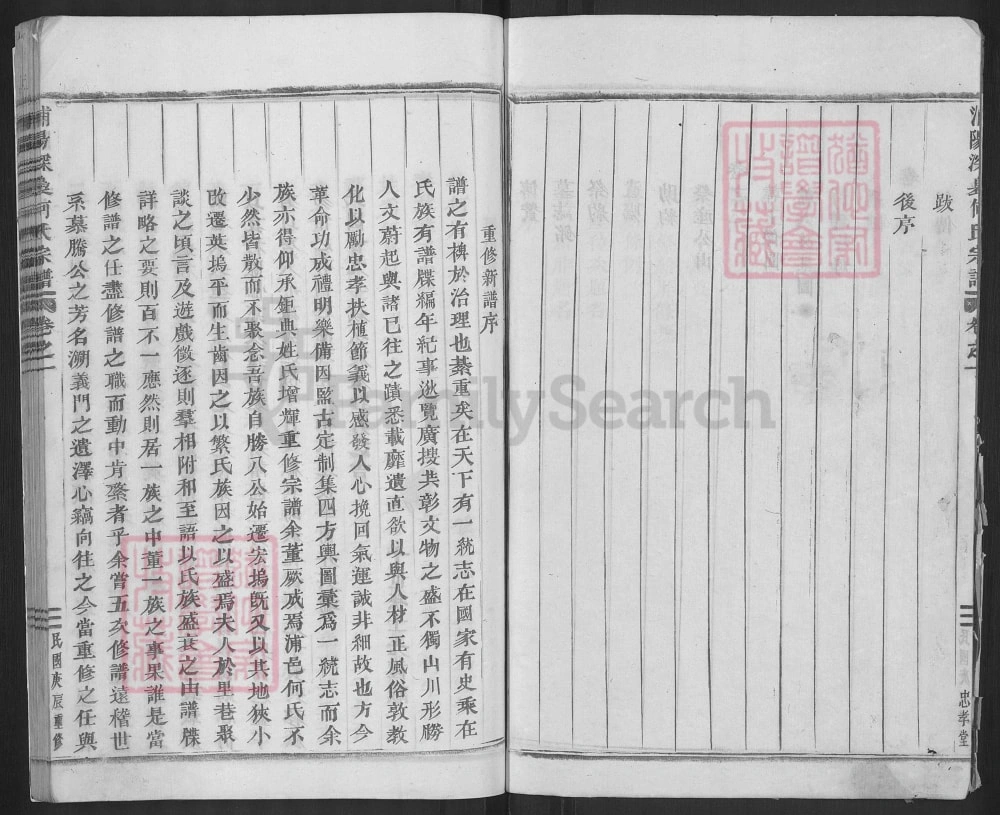 跋
後序
忠孝堂
重修新譜序
譜之有裨於治理也綦重矣在天下有一統志在國家有史乘在
氏族有譜牒編年紀事遐覽廣搜共彰文物之盛不獨山川形勝
人文蔚起與諸已往之蹟悉載靡遺直欲以與人材正風俗敦教
化以勵忠孝扶植節義以感發人心挽回氣運誠非細故也方今
革命功成禮明樂備因監古定制集四方輿圖彙爲一統志而余
族亦得仰承鉅典姓氏增輝重修宗譜余董厥成焉浦邑何氏不
少然皆散而不聚念吾族自勝八公始遷宏塢既又以其地狹小
改遷英塢平而生齒因之以繁氏族因之以盛焉夫人於里巷聚
談之頃言及遊戲徵逐則羣相附和至語以氏族盛衰之由譜牒
詳略之要則百不一應然則居一族之中董一族之事果誰是當
修譜之仕盡修譜之職而動中肯綮者乎余嘗五次修譜遠稽世
系慕騰公之芳名溯義門之遺澤心竊向往之今當重修之任與
浦陽深奧何氏宗譜 卷之一
民國庚辰重修
FamilySearch